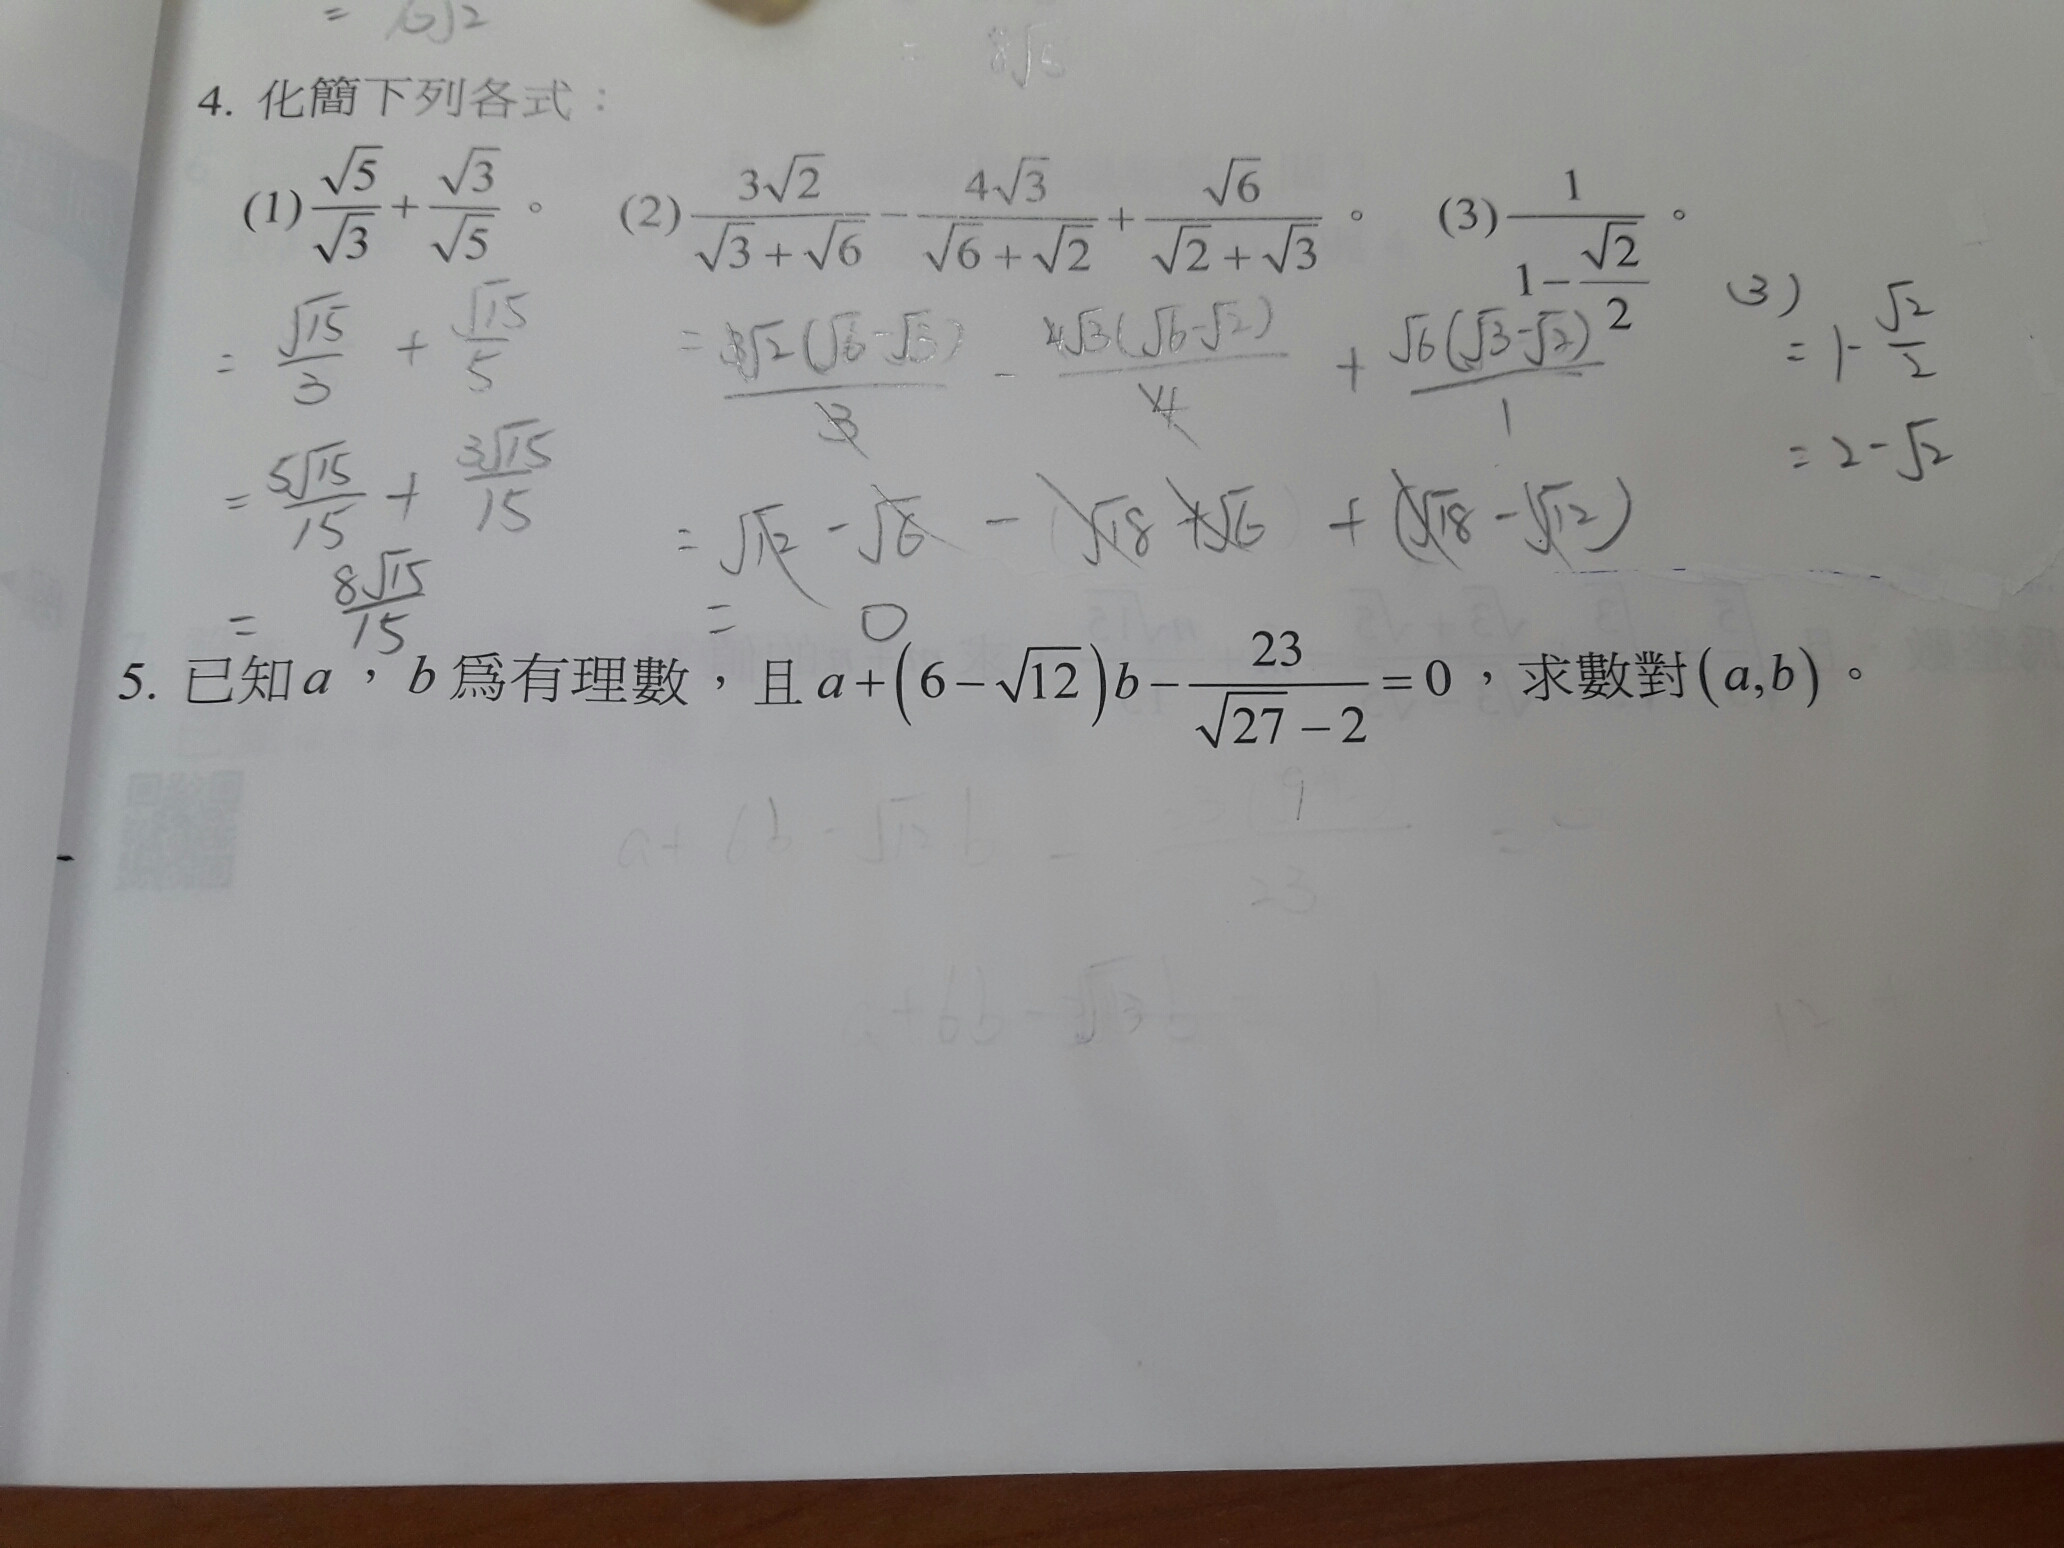 = 6√2
8√5
4. 化簡下列各式：
(1) √5/√3 + √3/√5 。 (2) 3√2/(√3+√6) − 4√3/(√6+√2) + √6/(√2+√3) 。 (3) 1/(1−√2/2) 。
= √15/3 + √15/5
= 5√15/15 + 3√15/15
= 8√15/15
= 3√2(√6−√3)/3 − 4√3(√6−√2)/4 + √6(√3−√2)/1
= √12 − √6 − (√18 + √6) + (√18 − √12)
= 0
(3)
= 1 − √2/2
= 2 − √2
5. 已知a，b為有理數，且 a+(6−√12)b−23/(√27−2)=0，求數對(a,b)。